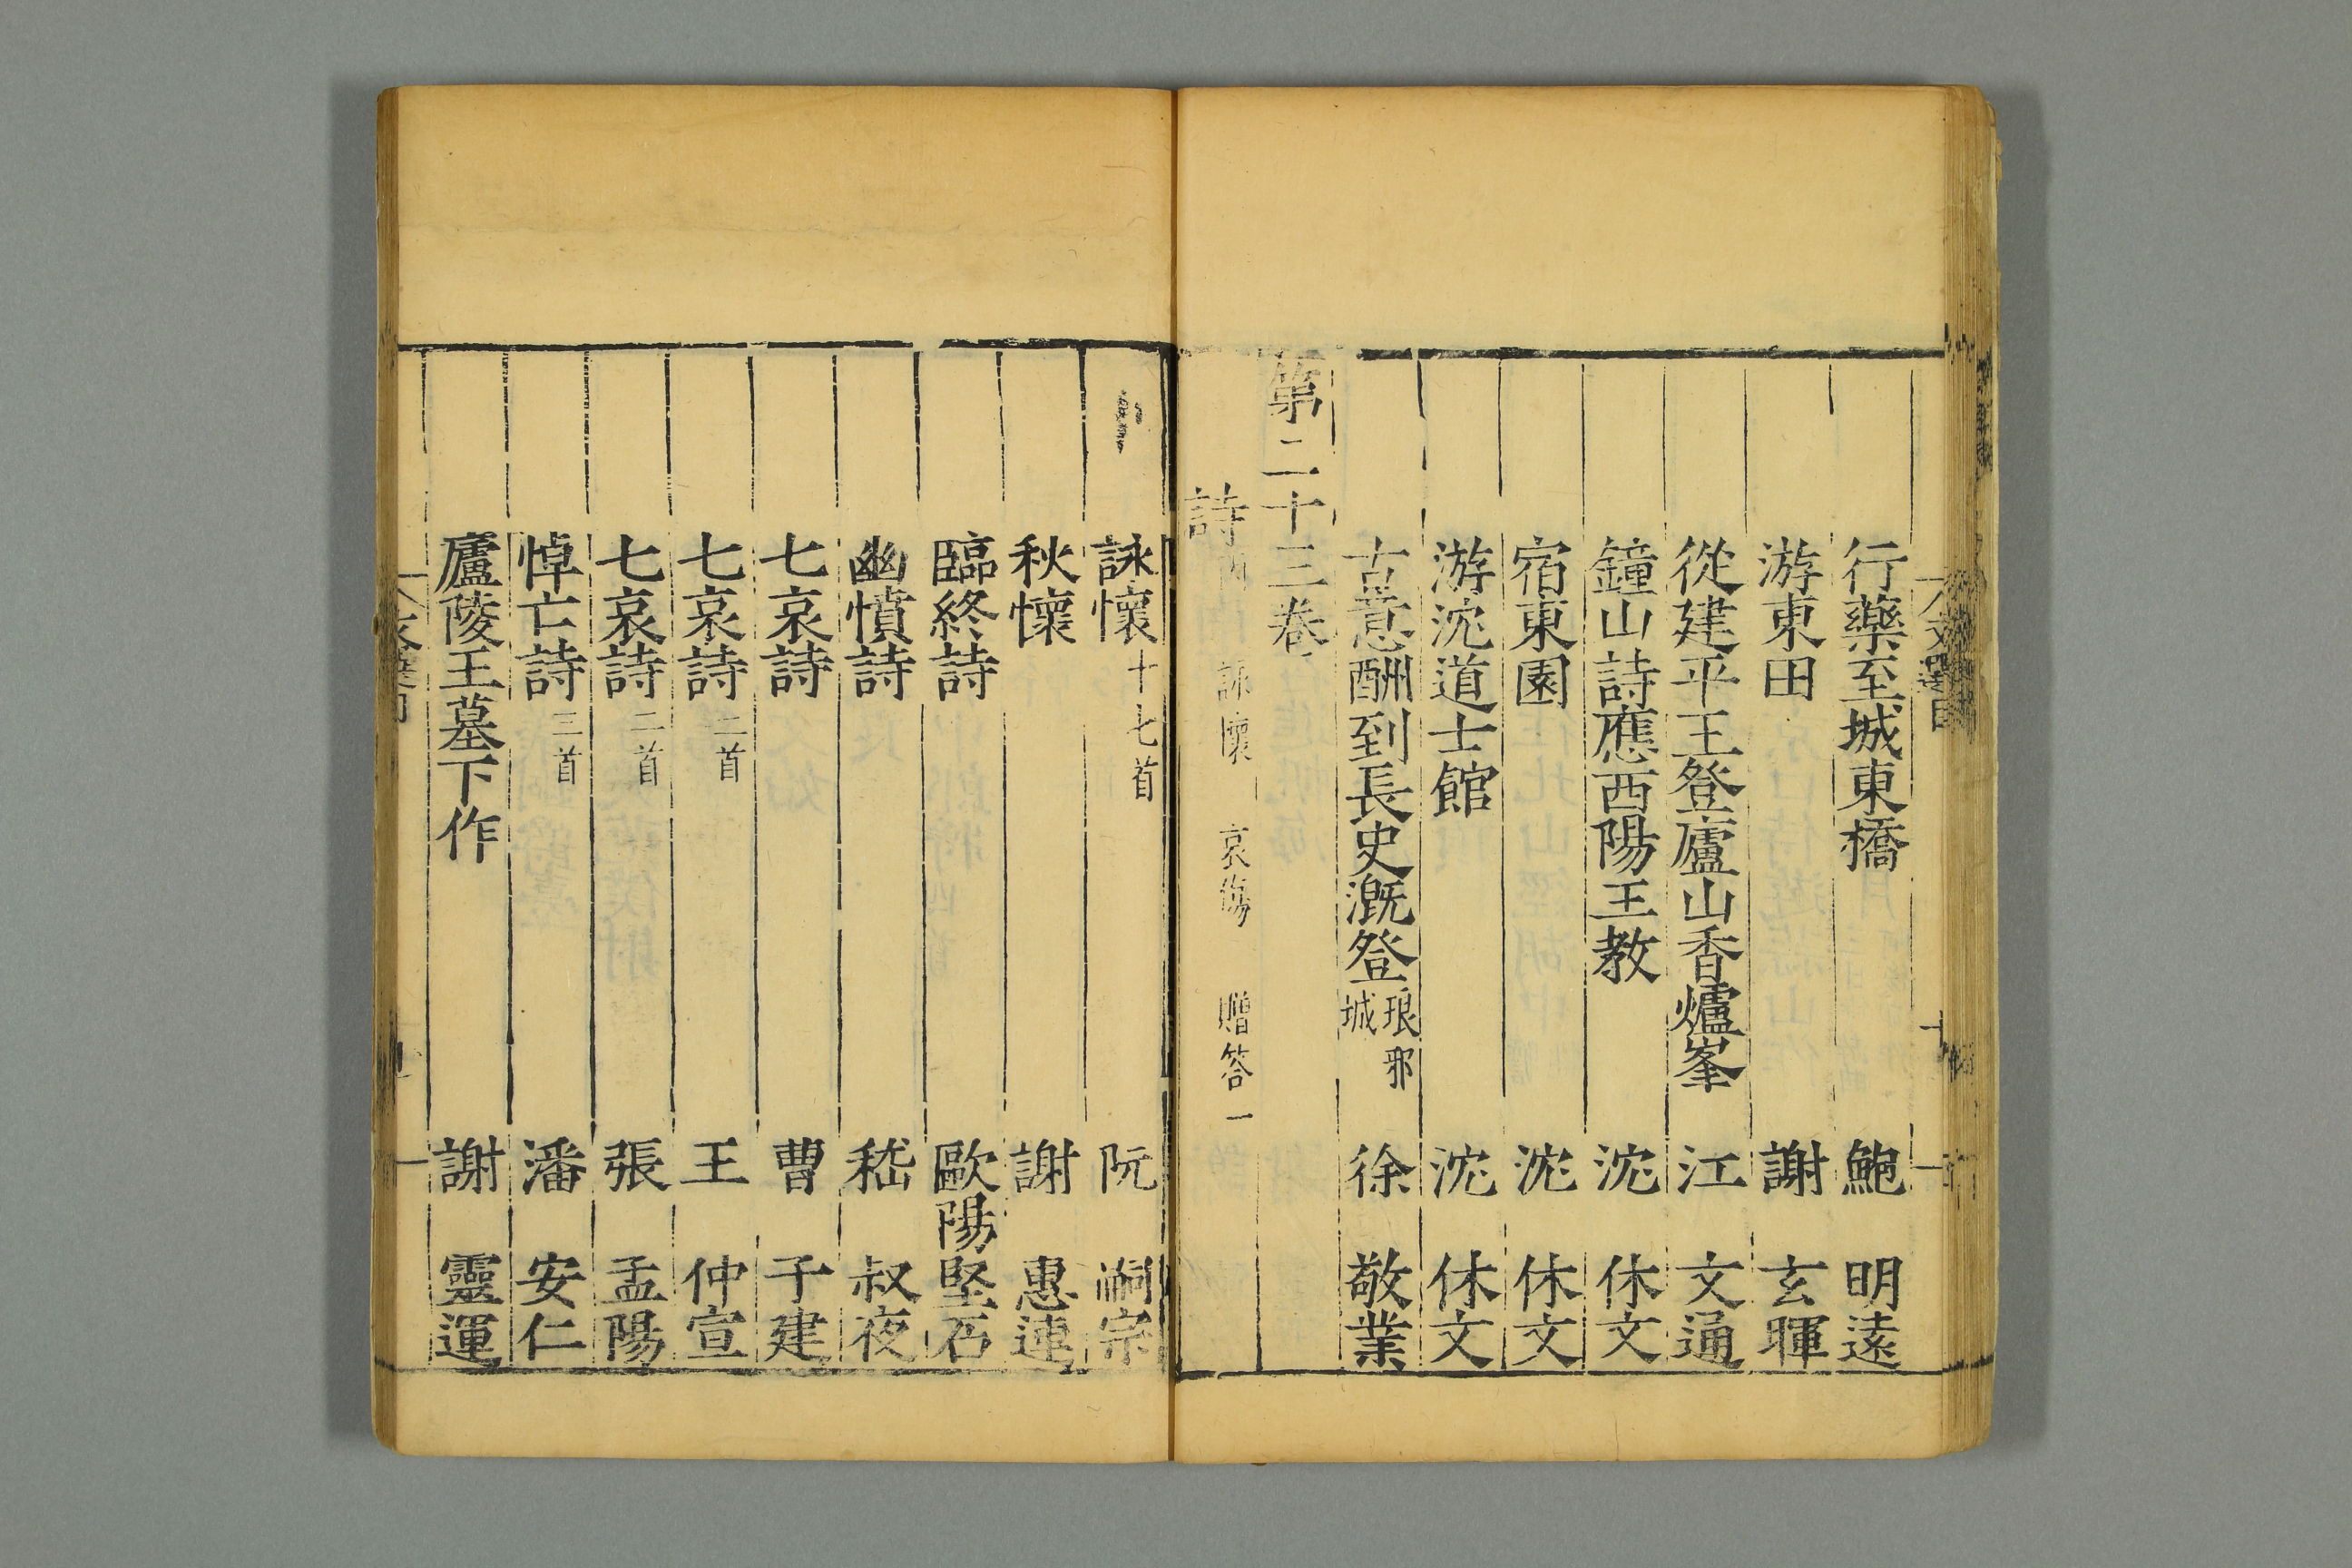 行藥至城東橋 鮑 明遠
游東田 謝 玄暉
從建平王登廬山香爐峯 江 文通
鐘山詩應西陽王教 沈 休文
宿東園 沈 休文
游沈道士館 沈 休文
古意酬到長史溉登琅邪城 徐 敬業
第二十三卷
詩丙 詠懷 哀傷 贈答一
詠懷十七首 阮 嗣宗
秋懷 謝 惠連
臨終詩 歐陽堅石
幽憤詩 嵇 叔夜
七哀詩 曹 子建
七哀詩二首 王 仲宣
七哀詩二首 張 孟陽
悼亡詩三首 潘 安仁
廬陵王墓下作 謝 靈運